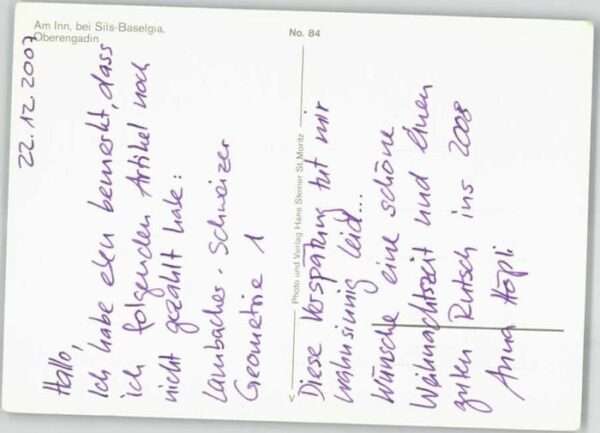 Am Inn, bei Sils-Baselgia,
Oberengadin
No. 84
22.12.2007
Hallo,
Ich habe eben bemerkt, dass
ich folgenden Artikel noch
nicht gezahlt habe:
Lambacher-Schweizer
Geometrie 1
Photo und Verlag Hans Steiner St. Moritz
Diese Verspätung tut mir
wahnsinnig leid...
Wünsche eine schöne
Weihnachtszeit und einen
guten Rutsch ins 2008
Anna Höpli